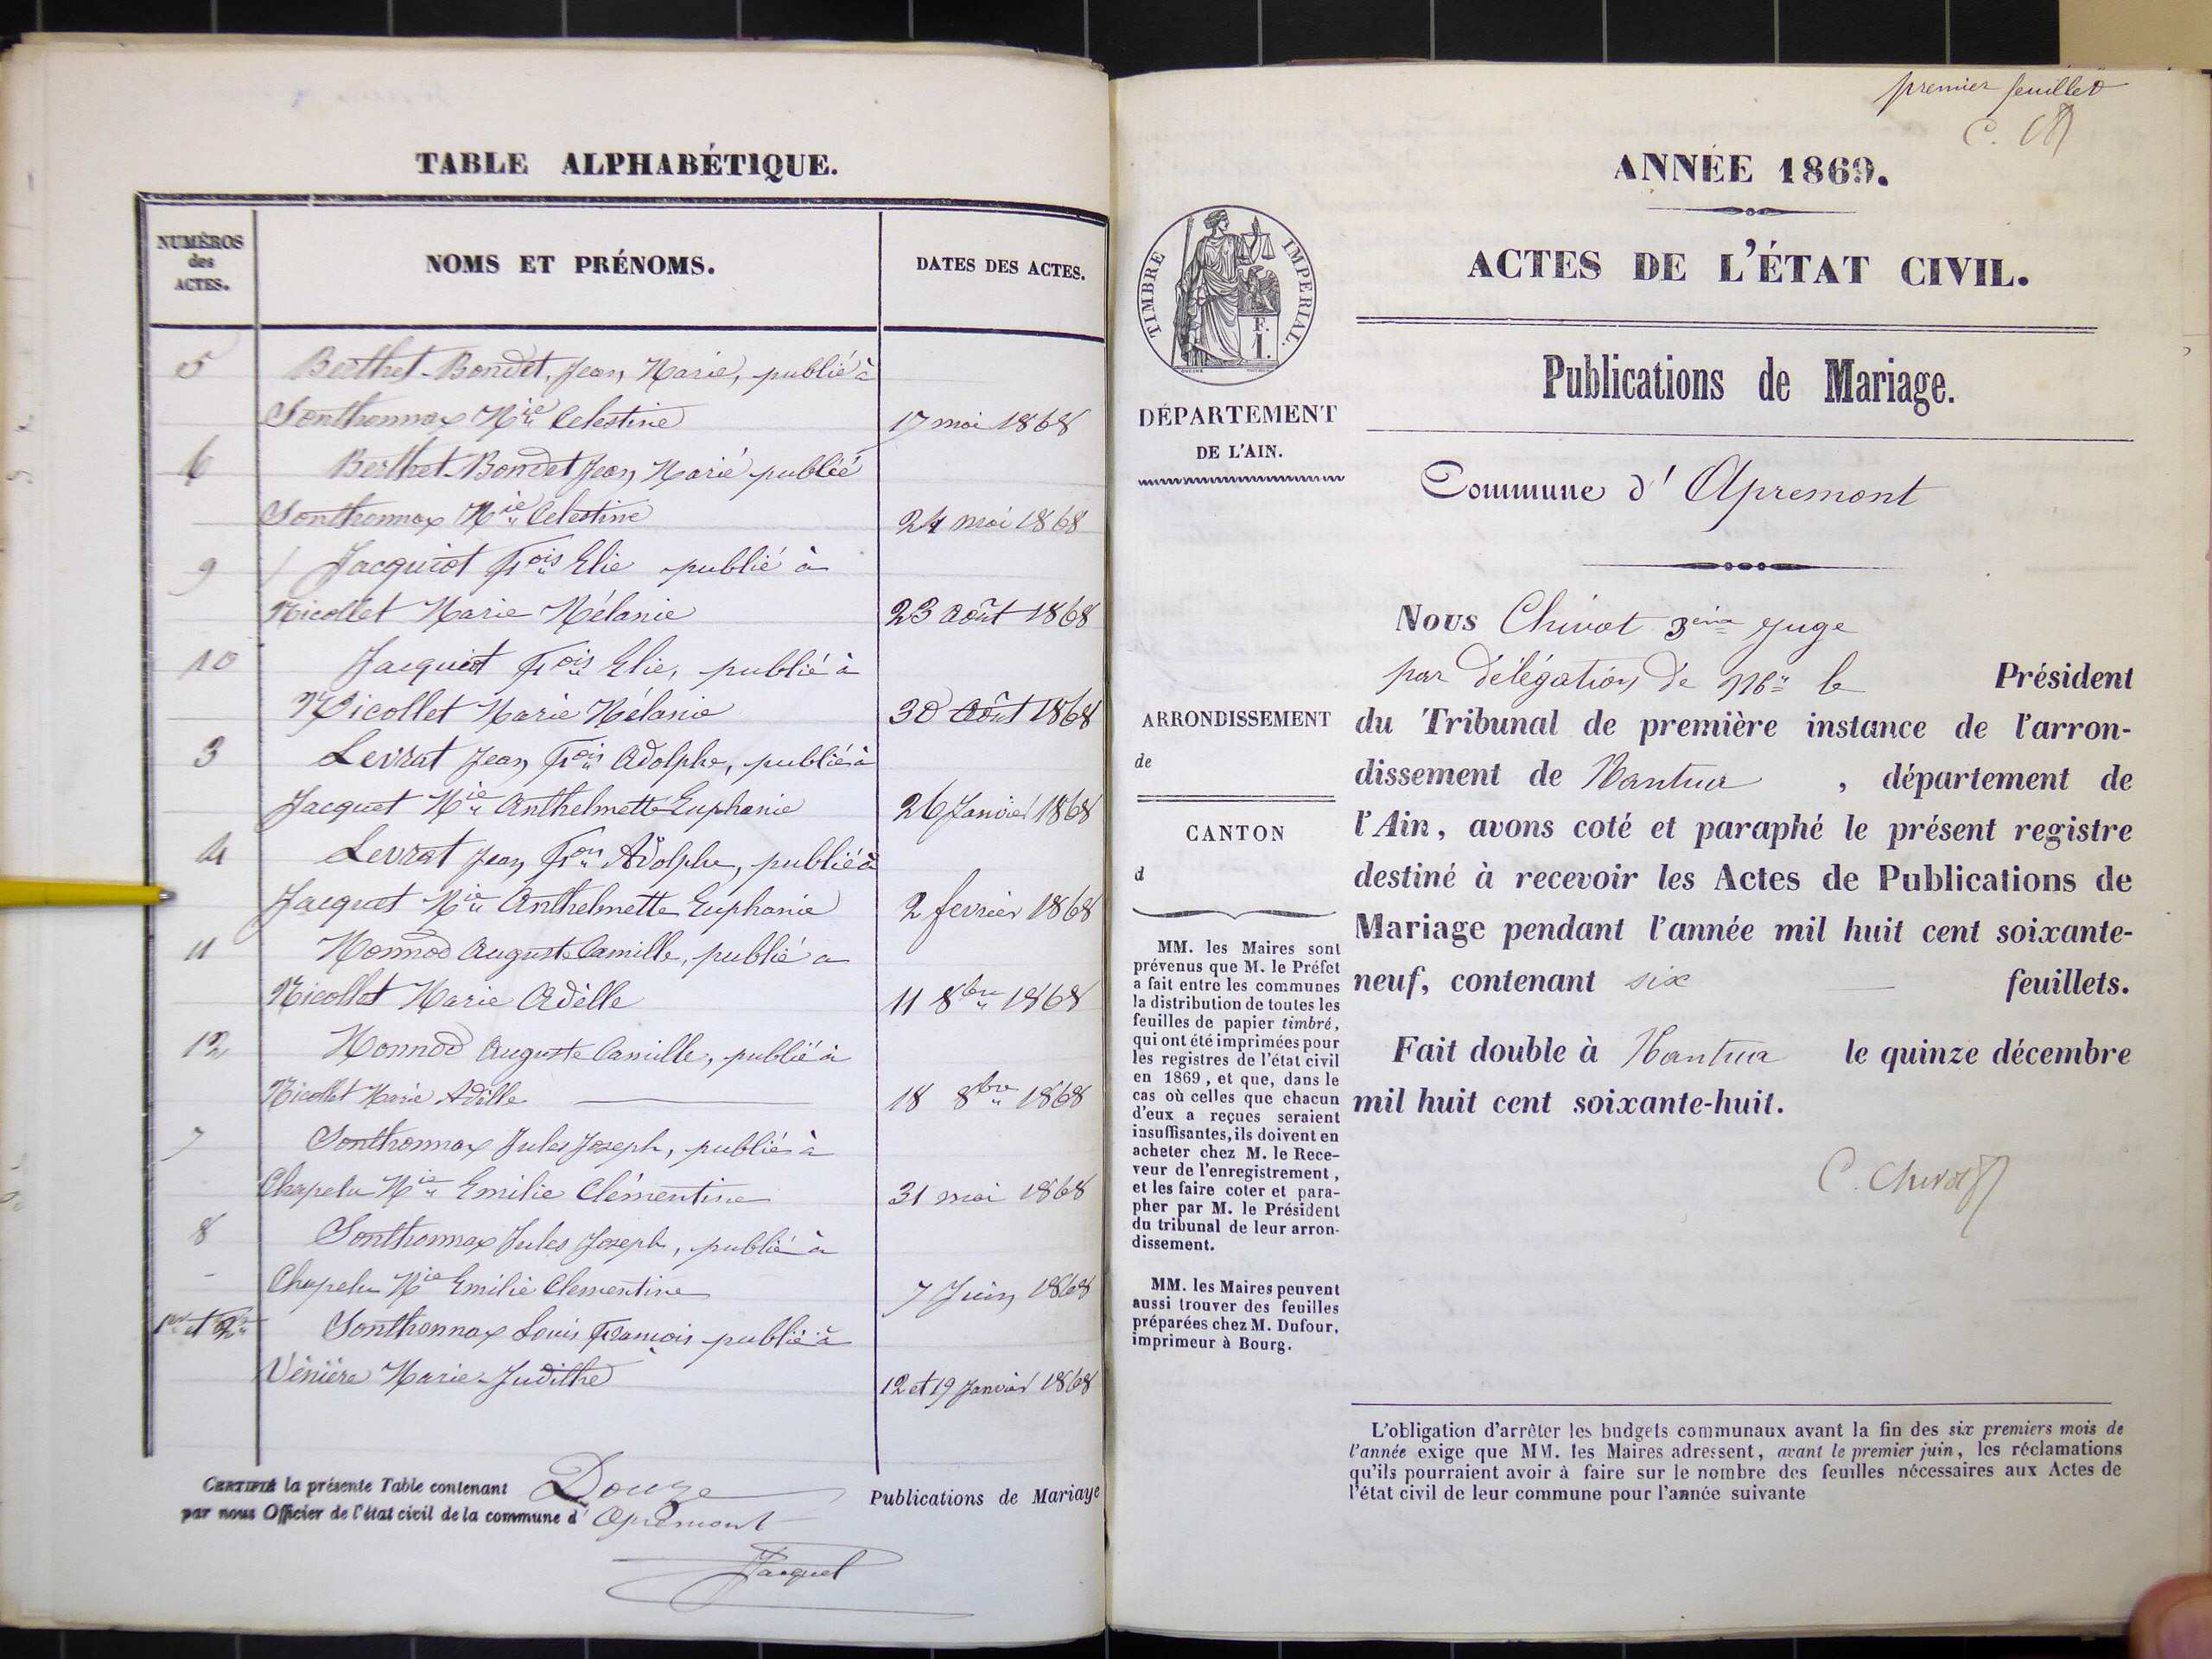 TABLE ALPHABÉTIQUE.
NUMÉROS
des
ACTES.
NOMS ET PRÉNOMS.
DATES DES ACTES.
5 Berthet-Bondet, Jean Marie, publié à
Sonthonnax Mie Celestine 17 mai 1868
6 Berthet-Bondet Jean Marie publié
Sonthonnax Mie Celestine 24 mai 1868
9 Jacquiot Fois Elie publié à
Nicollet Marie Mélanie 23 Août 1868
10 Jacquiot Fois Elie, publié à
Nicollet Marie Mélanie 30 Août 1868
3 Levrat Jean Fois Adolphe, publié à
Jacquet Mie Anthelmette Euphanie 26 Janvier 1868
4 Levrat Jean Fois Adolphe, publié à
Jacquet Mie Anthelmette Euphanie 2 fevrier 1868
11 Monnod Auguste Camille, publié a
Nicollet Marie Adèlle 11 8bre 1868
12 Monnod Auguste Camille, publié à
Nicollet Marie Adèlle 18 8bre 1868
7 Sonthonnax Jules Joseph, publié à
Chapelu Mie Emilie Clémentine 31 mai 1868
8 Sonthonnax Jules Joseph, publié à
Chapelu Mie Emilie Clementine 7 Juin 1868
1er et 2e Sonthonnax Louis François publié à
Vénière Marie-Judithe 12 et 19 Janvier 1868
CERTIFIÉ la présente Table contenant Douze Publications de Mariage
par nous Officier de l'état civil de la commune d' Apremont
Jacquet
premier feuillet
ANNÉE 1869.
ACTES DE L'ÉTAT CIVIL.
Publications de Mariage.
Commune d' Apremont
TIMBRE IMPERIAL.
F.
1.
DÉPARTEMENT
DE L'AIN.
ARRONDISSEMENT
de
CANTON
d
MM. les Maires sont
prévenus que M. le Préfet
a fait entre les communes
la distribution de toutes les
feuilles de papier timbré,
qui ont été imprimées pour
les registres de l'état civil
en 1869, et que, dans le
cas où celles que chacun
d'eux a reçues seraient
insuffisantes, ils doivent en
acheter chez M. le Rece-
veur de l'enregistrement,
et les faire coter et para-
pher par M. le Président
du tribunal de leur arron-
dissement.
MM. les Maires peuvent
aussi trouver des feuilles
préparées chez M. Dufour,
imprimeur à Bourg.
Nous Chivot 3ème Juge
par délégation de Mr le Président
du Tribunal de première instance de l'arron-
dissement de Nantua , département de
l'Ain, avons coté et paraphé le présent registre
destiné à recevoir les Actes de Publications de
Mariage pendant l'année mil huit cent soixante-
neuf, contenant six feuillets.
Fait double à Nantua le quinze décembre
mil huit cent soixante-huit.
C. Chivot
L'obligation d'arrêter les budgets communaux avant la fin des six premiers mois de
l'année exige que MM. les Maires adressent, avant le premier juin, les réclamations
qu'ils pourraient avoir à faire sur le nombre des feuilles nécessaires aux Actes de
l'état civil de leur commune pour l'année suivante